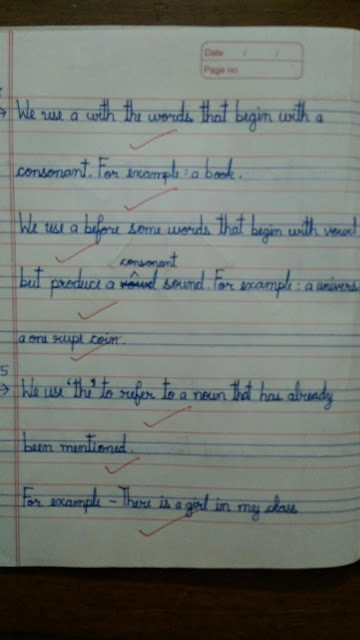 Date / /
Page no.
→ We use a with the words that begin with a
consonant. For example : a book.
We use a before some words that begin with vowel
consonant
but produce a sound. For example : a univers
a one rupe coin.
5
→ We use 'the' to refer to a noun that has already
been mentioned.
For example – There is a girl in my class